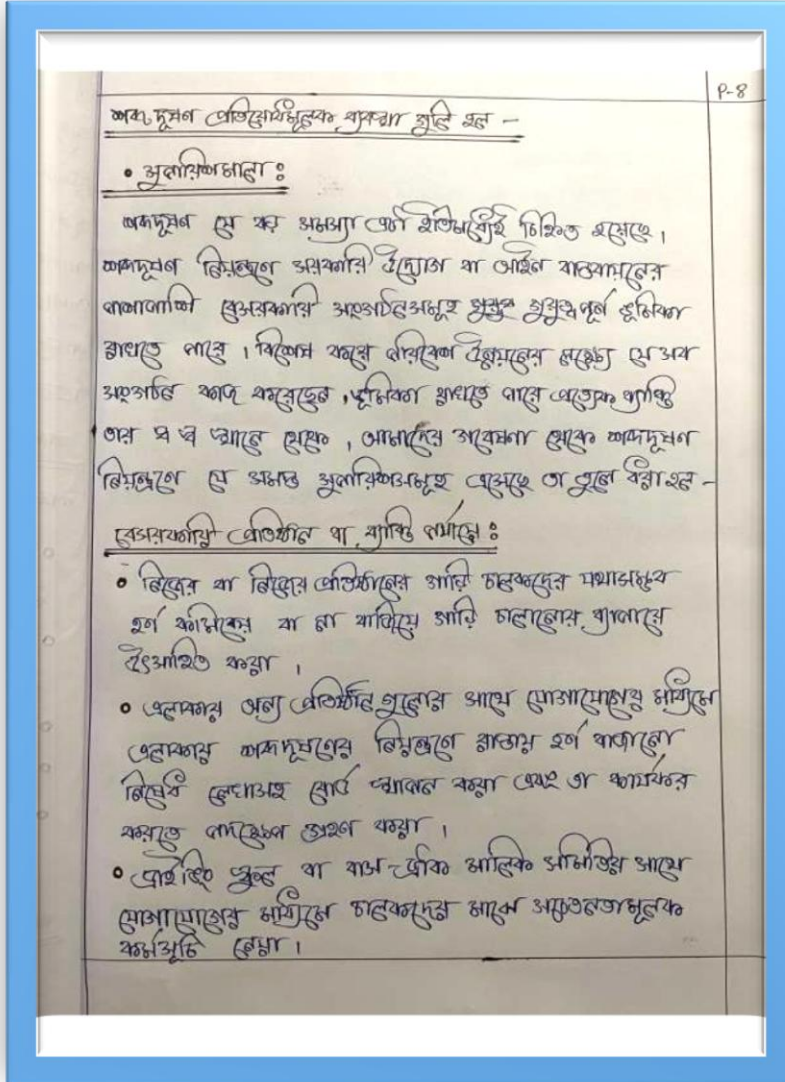 P-8
শব্দ দূষণ প্রতিরোধমূলক ব্যবস্থা গুলি হল -
• সুপারিশমালা :
শব্দদূষণ যে বড় সমস্যা এটা ইতিমধ্যেই চিহ্নিত হয়েছে।
শব্দদূষণ নিয়ন্ত্রণে সরকারি উদ্যোগ বা আইন বাস্তবায়নের
পাশাপাশি বেসরকারি সংগঠনসমূহ গুরুত্বপূর্ণ ভূমিকা
রাখতে পারে। বিশেষ করে পরিবেশ উন্নয়নের লক্ষ্যে যে সব
সংগঠন কাজ করেছেন, ভূমিকা রাখতে পারে প্রত্যেক ব্যক্তি
তার স্ব স্ব স্থানে থেকে, আমাদের গবেষণা থেকে শব্দদূষণ
নিয়ন্ত্রণে যে সমস্ত সুপারিশসমূহ এসেছে তা তুলে ধরা হল -
বেসরকারি প্রতিষ্ঠান বা ব্যক্তি পর্যায়ে :
• নিজের বা নিজের প্রতিষ্ঠানের গাড়ি চালকদের যথাসম্ভব
হর্ণ কমিয়ে বা না বাজিয়ে গাড়ি চালানোর ব্যাপারে
উৎসাহিত করা।
• এলাকার অন্য প্রতিষ্ঠান গুলোর সাথে যোগাযোগের মাধ্যমে
এলাকায় শব্দদূষণের নিয়ন্ত্রণে রাস্তায় হর্ণ বাজানো
নিষেধ লেখাসহ বোর্ড স্থাপন করা এবং তা কার্যকর
করতে পদক্ষেপ গ্রহণ করা।
• ড্রাইভিং স্কুল বা বাস ট্রাক মালিক সমিতির সাথে
যোগাযোগের মাধ্যমে চালকদের মাঝে সচেতনতামূলক
কর্মসূচি নেয়া।